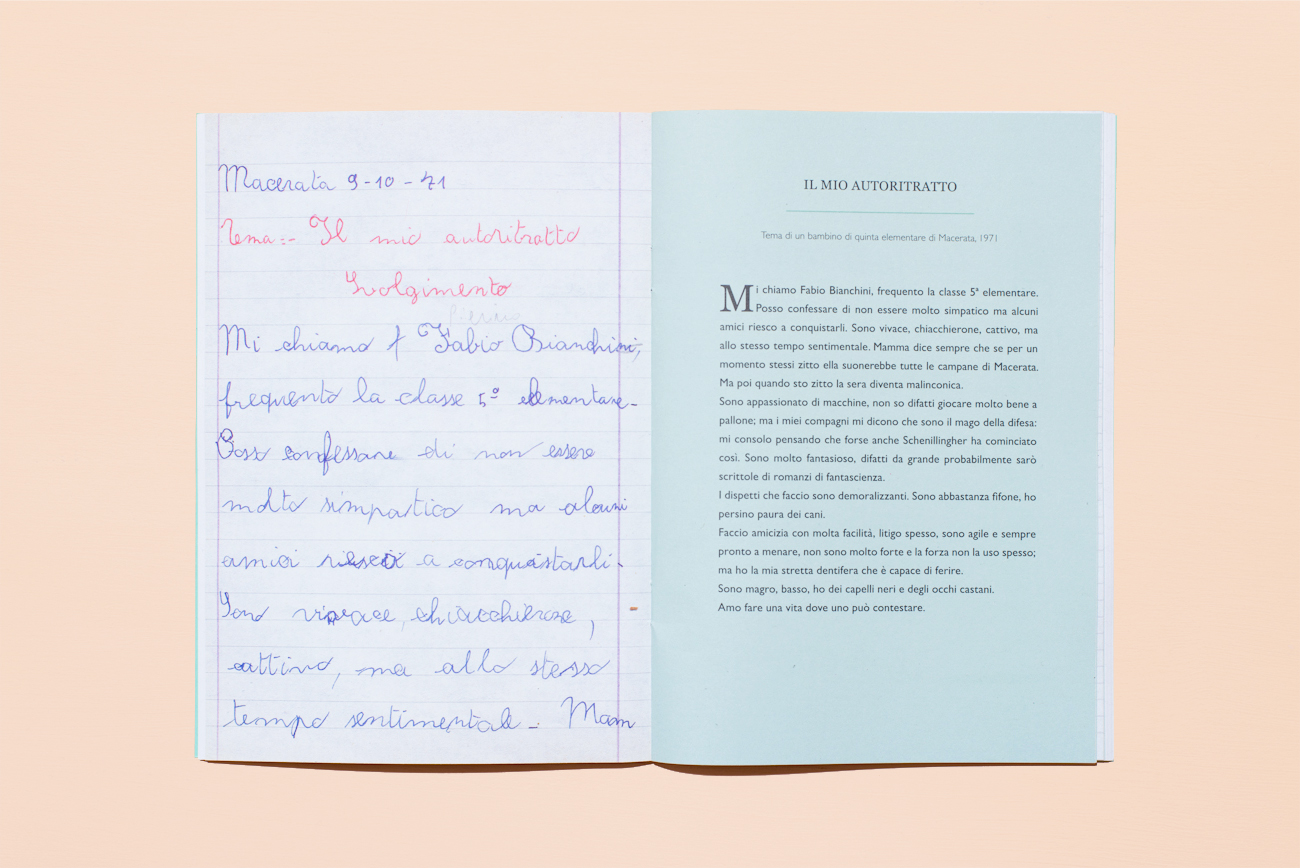 Macerata 9-10-71
Tema:- Il mio autoritratto
Svolgimento
Mi chiamo f Fabio Bianchini,
frequento la classe 5º elementare-
Posso confessare di non essere
molto simpatico ma alcuni
amici riesco a conquistarli.
Sono vivace, chiacchierone,
cattivo, ma allo stesso
tempo sentimentale-. Mam
IL MIO AUTORITRATTO
Tema di un bambino di quinta elementare di Macerata, 1971
Mi chiamo Fabio Bianchini, frequento la classe 5ª elementare.
Posso confessare di non essere molto simpatico ma alcuni
amici riesco a conquistarli. Sono vivace, chiacchierone, cattivo, ma
allo stesso tempo sentimentale. Mamma dice sempre che se per un
momento stessi zitto ella suonerebbe tutte le campane di Macerata.
Ma poi quando sto zitto la sera diventa malinconica.
Sono appassionato di macchine, non so difatti giocare molto bene a
pallone; ma i miei compagni mi dicono che sono il mago della difesa:
mi consolo pensando che forse anche Schenillingher ha cominciato
così. Sono molto fantasioso, difatti da grande probabilmente sarò
scrittole di romanzi di fantascienza.
I dispetti che faccio sono demoralizzanti. Sono abbastanza fifone, ho
persino paura dei cani.
Faccio amicizia con molta facilità, litigo spesso, sono agile e sempre
pronto a menare, non sono molto forte e la forza non la uso spesso;
ma ho la mia stretta dentifera che è capace di ferire.
Sono magro, basso, ho dei capelli neri e degli occhi castani.
Amo fare una vita dove uno può contestare.